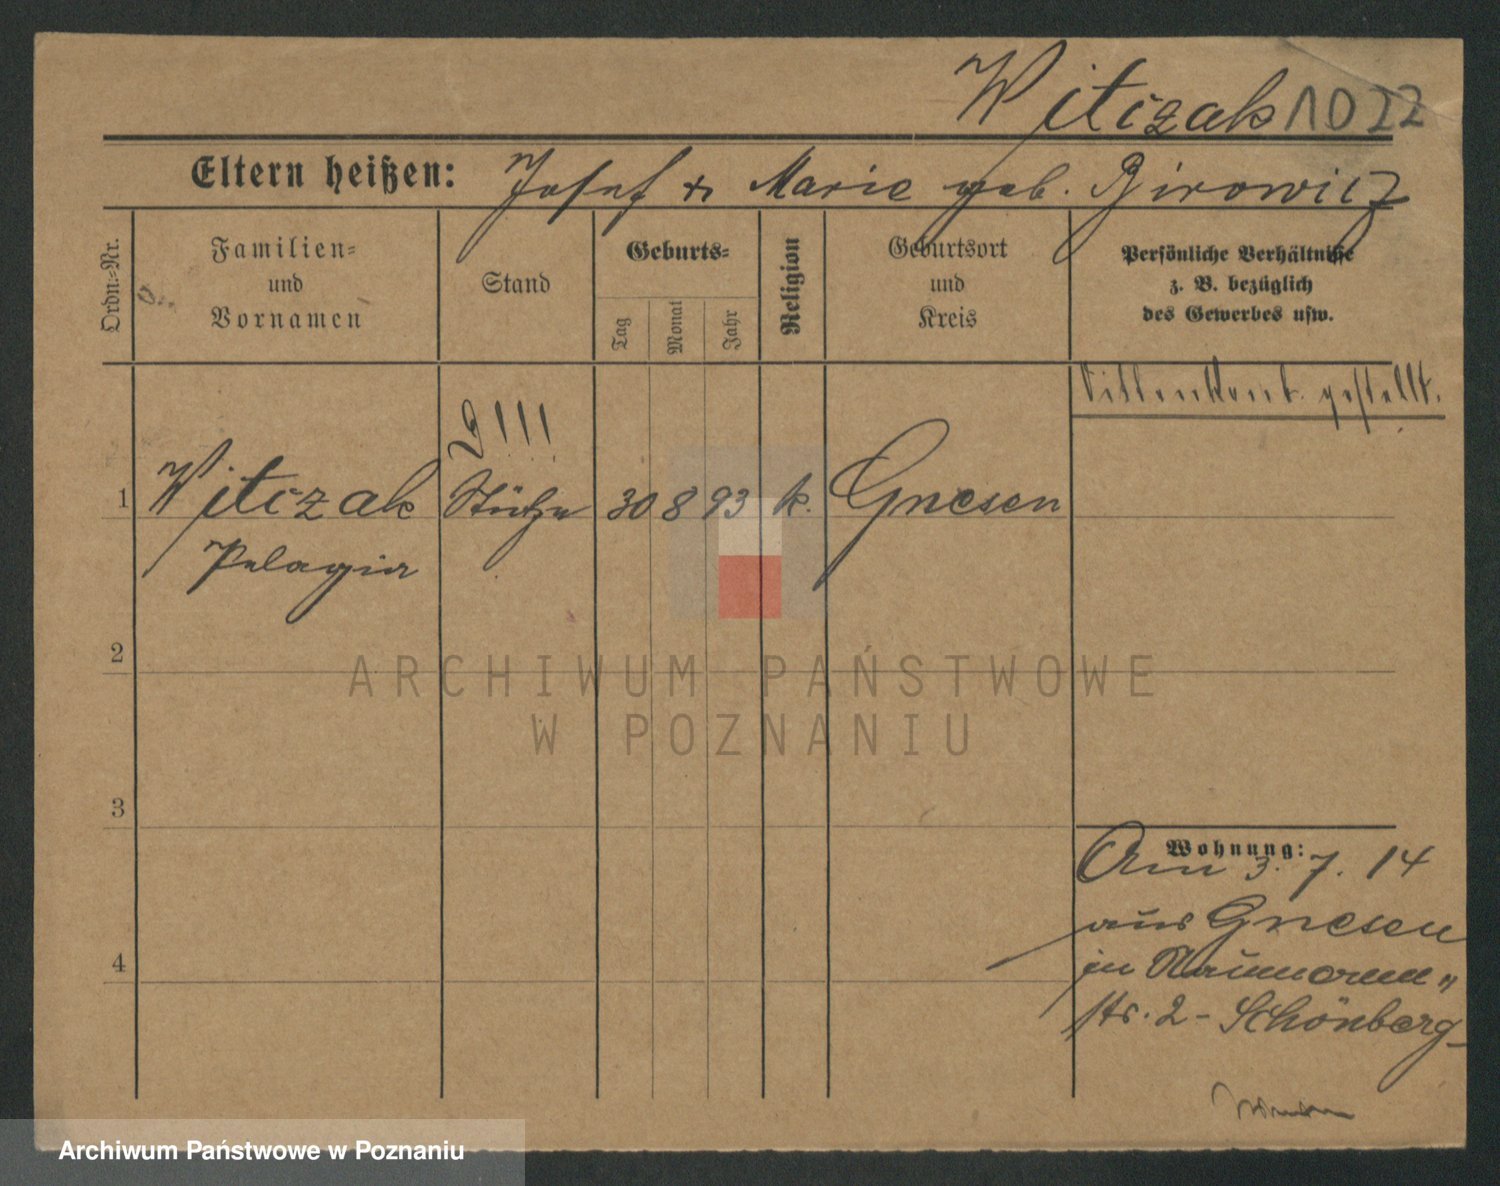 Witczak 1022
Eltern heißen: Josef & Marie geb. Birowicz
Ordn.=Nr.
Familien=
und
Vornamen
Stand
Geburts=
Tag
Monat
Jahr
Religion
Geburtsort
und
Kreis
Persönliche Verhältnisse
z. B. bezüglich
des Gewerbes usw.
Sittenkont. gestellt.
!!!
1 Witczak Stütze 30 8 93 k. Gnesen
Pelagia
2
3
4
Wohnung:
Am 3. 7. 14
aus Gnesen
in
str. 2 - Schönberg
ARCHIWUM PAŃSTWOWE
W POZNANIU
Archiwum Państwowe w Poznaniu